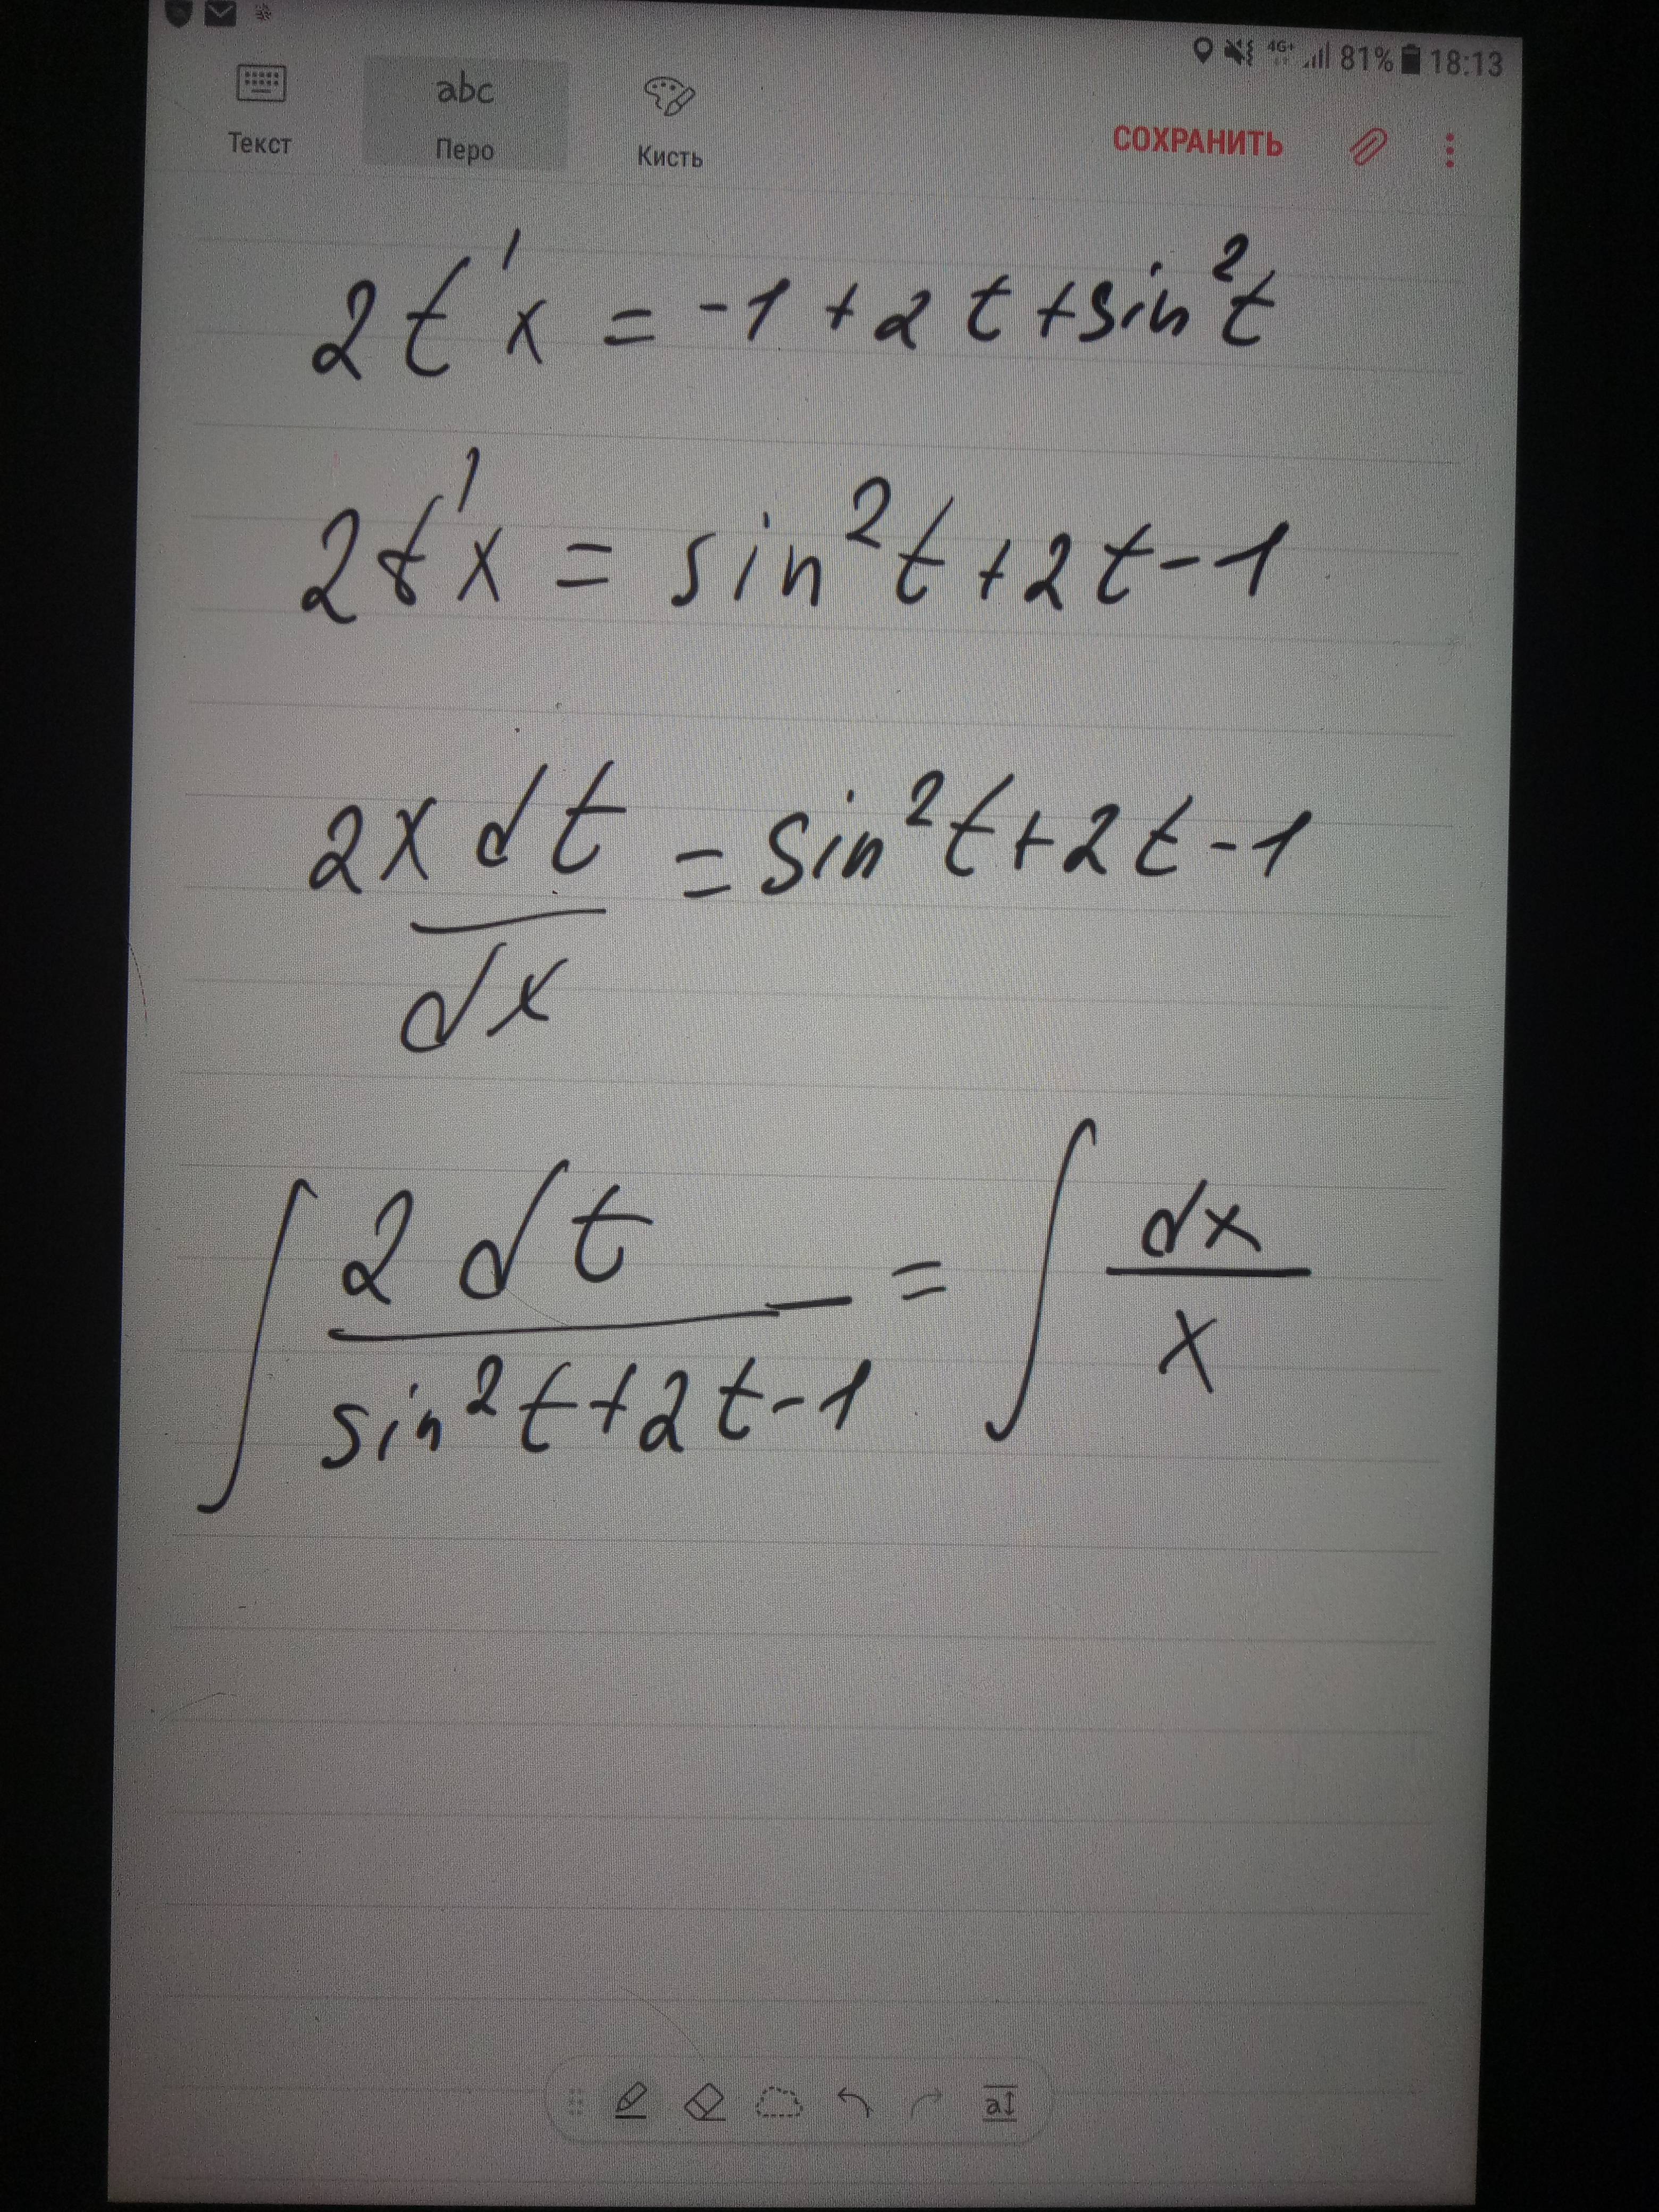 4G+ 81% 18:13
Текст abc Перо Кисть СОХРАНИТЬ
2t'x = -1 + 2t + sin²t
2t'x = sin²t + 2t - 1
2x dt/dx = sin²t + 2t - 1
∫ 2dt/(sin²t + 2t - 1) = ∫ dx/x
a